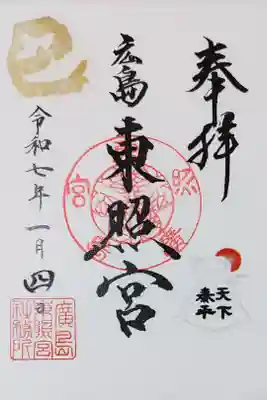 奉拝
天下
泰平
広島
東照宮
巳
令和七年一月四日
廣島
東照宮
社務所